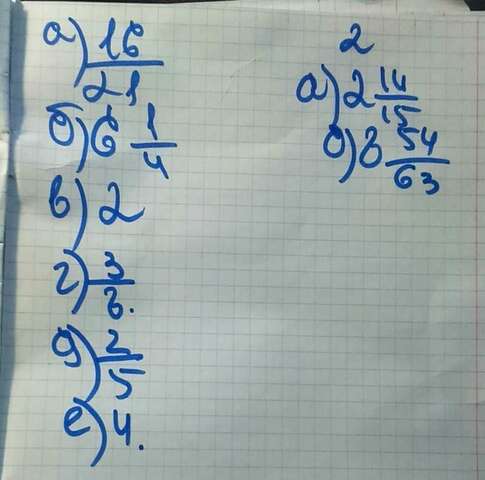 а) 16/21
б) 6 1/4
в) 2
г) 3/8.
д) 2/5
е) 4.
2
а) 2 14/15
б) 8 54/63